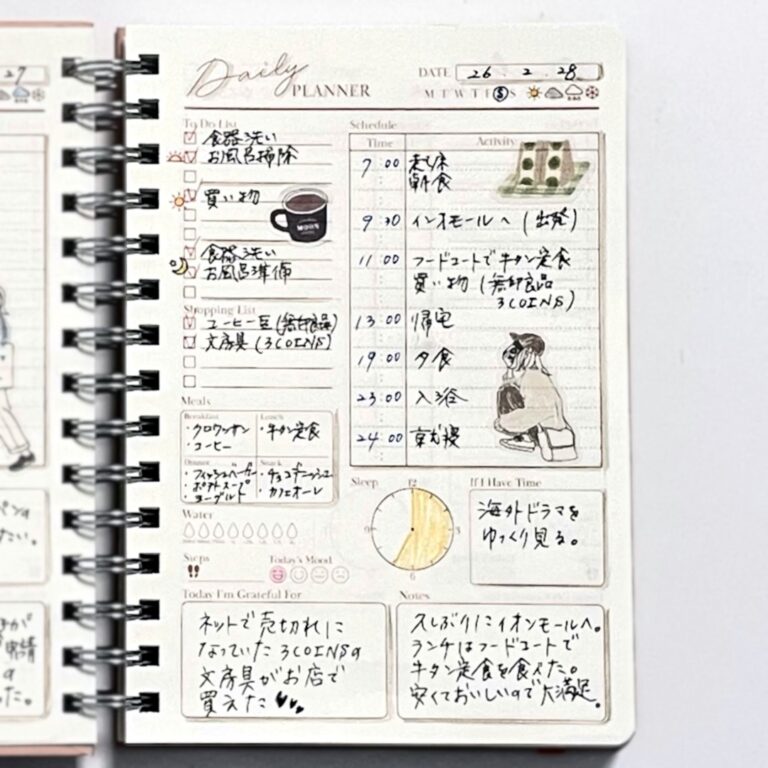 27
Daily
PLANNER
DATE 26 . 2 . 28
M T W T F S S
To Do List
食器洗い
お風呂掃除
買い物
MOON
食器洗い
お風呂準備
Shopping List
コーヒー豆 (無印良品)
文房具 (3COINS)
Meals
Breakfast
・クロワッサン
・コーヒー
Lunch
・牛タン定食
Dinner
・フィッシュバーガー
・ポテトスープ
・ヨーグルト
Snack
・チョコデニッシュ
・カフェオーレ
Water
Steps
Today's Mood
Schedule
Time
Activity
7:00 起床
朝食
9:30 イオンモールへ (出発)
11:00 フードコートで牛タン定食
買い物 (無印良品
3COINS)
13:00 帰宅
19:00 夕食
23:00 入浴
24:00 就寝
Sleep
12
3
6
9
If I Have Time
海外ドラマを
ゆっくり見る。
Today I'm Grateful For
ネットで売切れに
なっていた3COINSの
文房具がお店で
買えた
Notes
久しぶりにイオンモールへ。
ランチはフードコートで
牛タン定食を食べた。
安くておいしいので大満足。